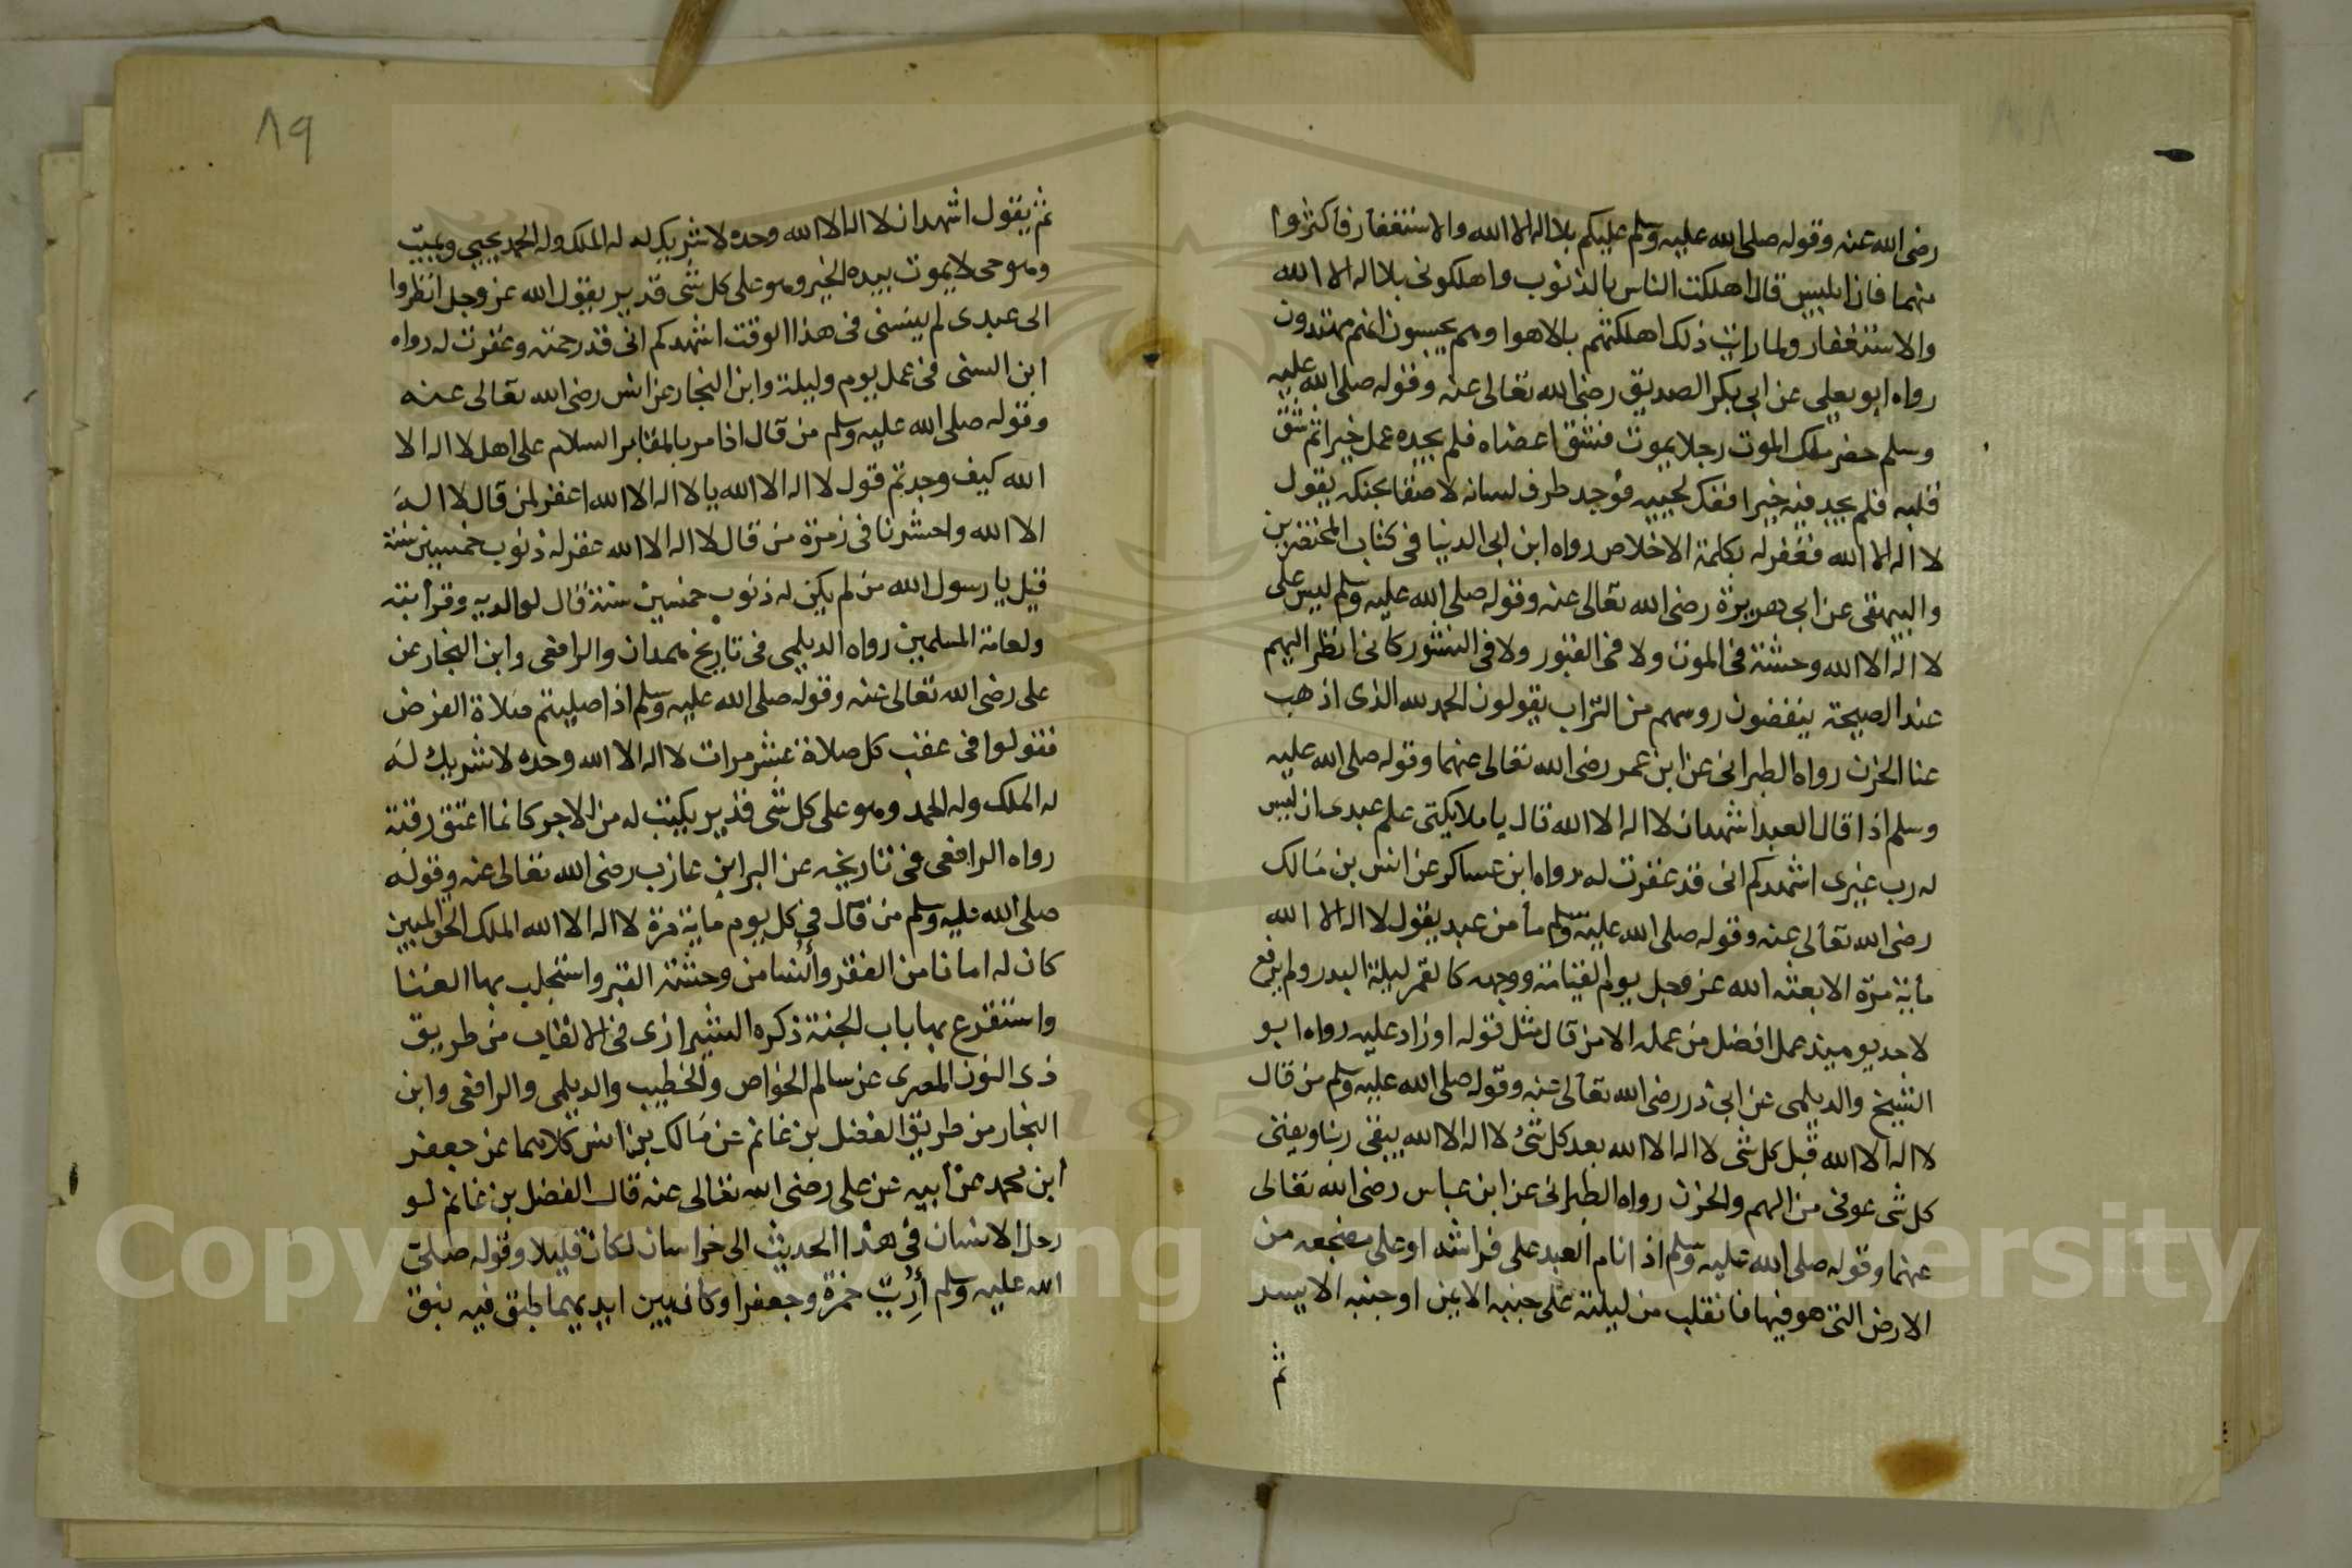 رضى الله عنه وقوله صلى الله عليه وسلم عليكم بلا اله الا الله والاستغفار فأكثروا
منهما فان ابليس قال اهلكت الناس بالذنوب واهلكونى بلا اله الا الله
والاستغفار ولما رايت ذلك اهلكتهم بالاهوا وهم يحسبون انهم مهتدون
رواه ابو يعلى عن ابي بكر الصديق رضى الله تعالى عنه وقوله صلى الله عليه
وسلم حضر ملك الموت رجلا يموت فشق اعضاه فلم يجده عمل خيرا ثم شق
قلبه فلم يجد فيه خيرا ففك لحييه فوجد طرف لسانه لاصقا بحنكه يقول
لا اله الا الله فغفر له بكلمة الاخلاص رواه ابن ابى الدنيا فى كتاب المحتضرين
والبيهقى عن ابى هريرة رضى الله تعالى عنه وقوله صلى الله عليه وسلم ليس على
لا اله الا الله وحشة فى الموت ولا فى القبور ولا فى النشور كانى انظر اليهم
عند الصيحة ينفضون روسهم من التراب يقولون الحمد لله الذى اذهب
عنا الحزن رواه الطبرانى عن ابن عمر رضى الله تعالى عنهما وقوله صلى الله عليه
وسلم اذا قال العبد اشهد ان لا اله الا الله قال يا ملايكتى علم عبدى ان ليس
له رب غيرى اشهدكم انى قد غفرت له رواه ابن عساكر عن انس بن مالك
رضى الله تعالى عنه وقوله صلى الله عليه وسلم ما من عبد يقول لا اله الا الله
مأية مرة الا بعثه الله عز وجل يوم القيامة ووجهه كالقمر ليلة البدر ولم يرفع
لاحد يوميذ عمل افضل من عمله الا من قال مثل قوله او زاد عليه رواه ابو
الشيخ والديلمى عن ابى ذر رضى الله تعالى عنه وقوله صلى الله عليه وسلم من قال
لا اله الا الله قبل كل شى لا اله الا الله بعد كل شئ لا اله الا الله يبقى ربنا ويفنى
كل شى عوفى من الهم والحزن رواه الطبرانى عن ابن عباس رضى الله تعالى
عنهما وقوله صلى الله عليه وسلم اذا نام العبد على فراشه او على مضجعه من
الارض التى هو فيها فانقلب من ليلته على جنبه الايمن او جنبه الايسر
ثم
٨٩
ثم يقول اشهد ان لا اله الا الله وحده لا شريك له له الملك وله الحمد يحيى ويميت
وهو حى لا يموت بيده الخير وهو على كل شى قدير يقول الله عز وجل انظروا
الى عبدى لم ينسنى فى هذا الوقت اشهدكم انى قد رحمته وغفرت له رواه
ابن السنى فى عمل يوم وليلة وابن النجار عن انس رضى الله تعالى عنه
وقوله صلى الله عليه وسلم من قال اذا مر بالمقابر السلام على اهل لا اله الا
الله كيف وجدتم قول لا اله الا الله يا لا اله الا الله اغفر لمن قال لا اله
الا الله واحشرنا فى زمرة من قال لا اله الا الله غفر له ذنوب خمسين سنة
قيل يا رسول الله من لم يكن له ذنوب خمسين سنة قال لوالديه وقرابته
ولعامة المسلمين رواه الديلمى فى تاريخ همدان والرافعى وابن النجار عن
على رضى الله تعالى عنه وقوله صلى الله عليه وسلم اذا صليتم صلاة الفرض
فقولوا فى عقب كل صلاة عشر مرات لا اله الا الله وحده لا شريك له
له الملك وله الحمد وهو على كل شى قدير يكتب له من الاجر كانما اعتق رقبة
رواه الرافعى فى تاريخه عن البرا بن عازب رضى الله تعالى عنه وقوله
صلى الله عليه وسلم من قال فى كل يوم ماية مرة لا اله الا الله الملك الحق المبين
كان له امانا من الفقر وأنسا من وحشة القبر واستجلب بها الغنا
واستقرع بها باب الجنة ذكره الشيرازى فى الالقاب من طريق
ذى النون المصرى عن سالم الخواص والخطيب والديلمى والرافعى وابن
النجار من طريق الفضل بن غانم عن مالك بن انس كلاهما عن جعفر
ابن محمد عن أبيه عن على رضى الله تعالى عنه قال الفضل بن غانم لو
رحل الانسان فى هذا الحديث الى خراسان لكان قليلا وقوله صلى
الله عليه وسلم أريت حمزة وجعفرا وكان بين ايديهما طبق فيه نبق
Copyright © King Saud University
1957